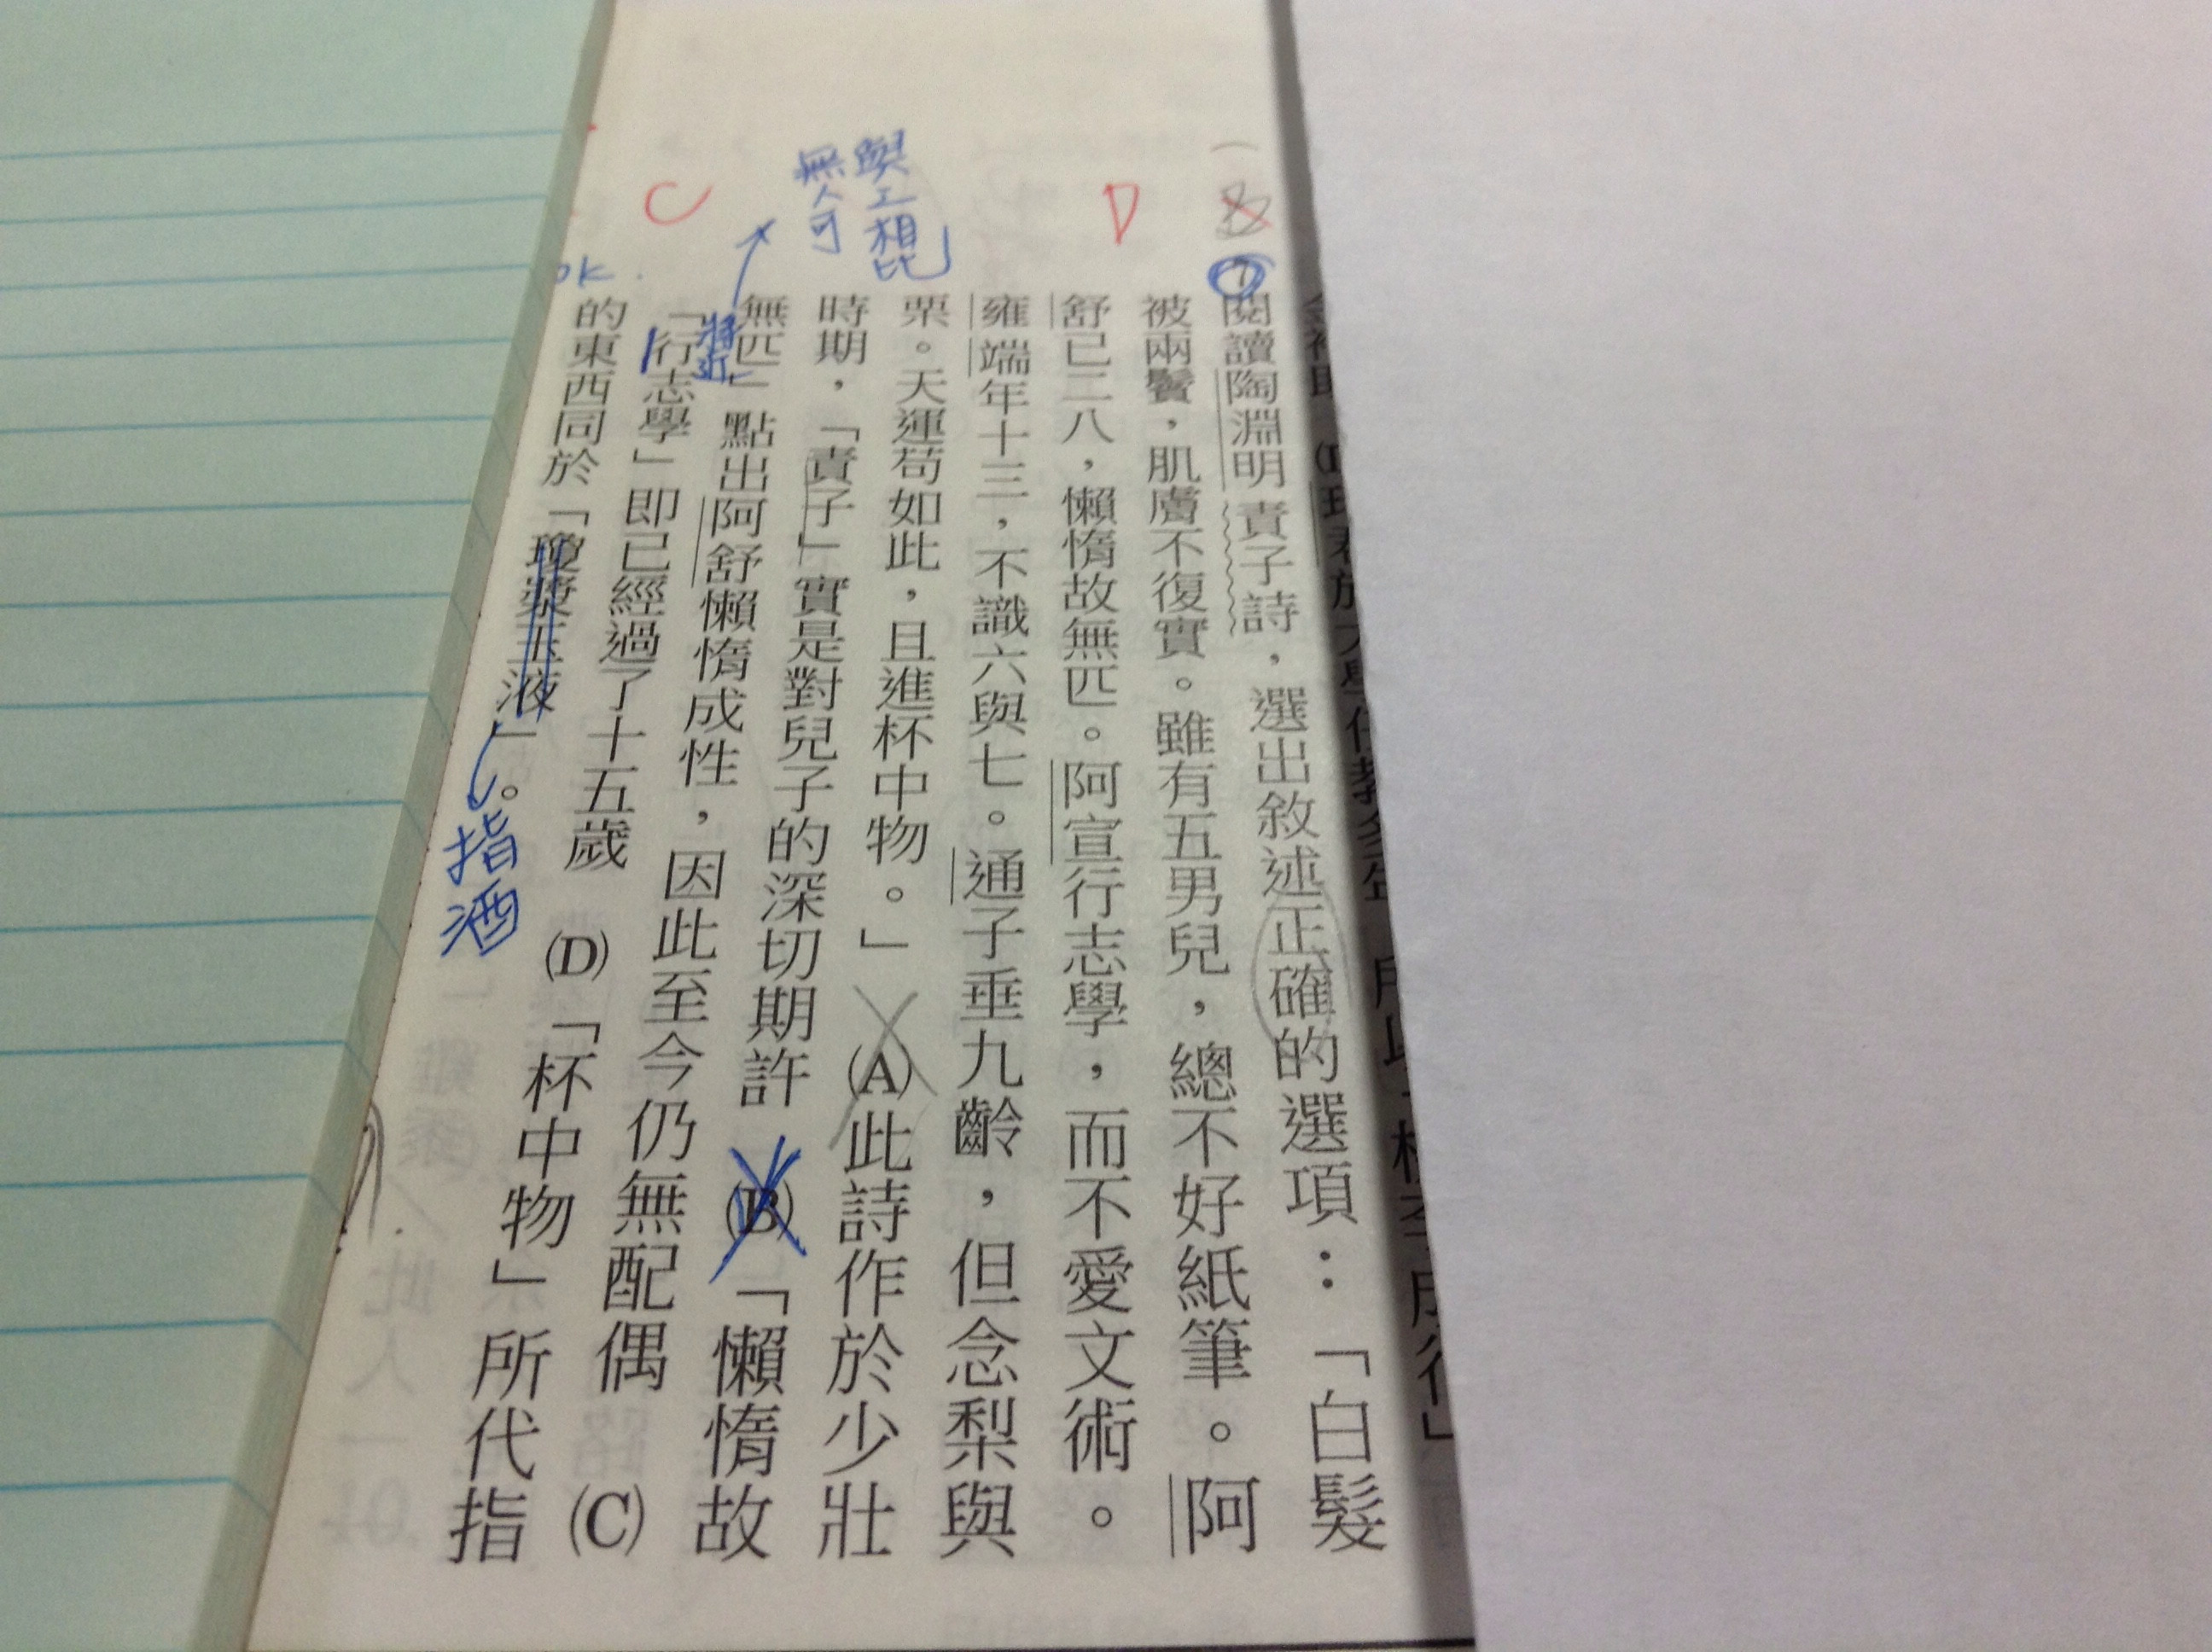 閱讀陶淵明責子詩，選出敘述正確的選項：「白髮
被兩鬢，肌膚不復實。雖有五男兒，總不好紙筆。阿
舒已二八，懶惰故無匹。阿宣行志學，而不愛文術。
雍端年十三，不識六與七。通子垂九齡，但念梨與
栗。天運苟如此，且進杯中物。」(A)此詩作於少壯
時期，「責子」實是對兒子的深切期許 (B)「懶惰故
無匹」點出阿舒懶惰成性，因此至今仍無配偶 (C)
「行志學」即已經過了十五歲 (D)「杯中物」所代指
的東西同於「瓊漿玉液」。
D
C
無人可
將近
ok
指酒